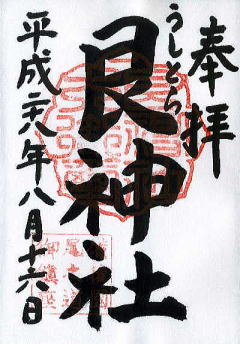 奉拝
うしとら
艮神社
平成二八年八月十六日